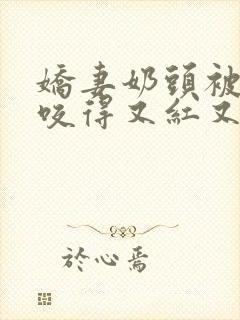 嬌妻奶頭被
咬得又紅又
於心焉